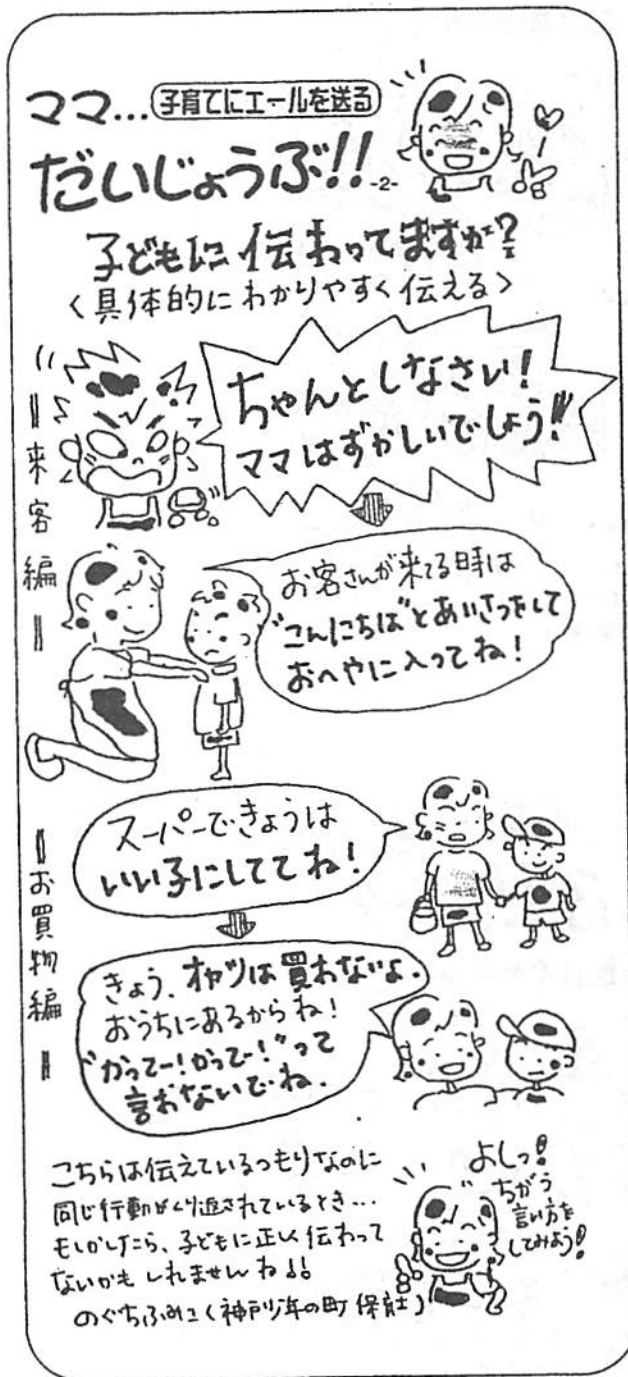 ママ…子育てにエールを送る
だいじょうぶ!!-2-
子どもに伝わってますか?
<具体的にわかりやすく伝える>
=来客編=
ちゃんとしなさい!
ママはずかしいでしょう!!
お客さんが来てる時は
"こんにちは"とあいさつをして
おへやに入ってね!
=お買物編=
スーパーできょうは
いい子にしててね!
きょう、オヤツは買わないよ.
おうちにあるからね!
"かってー!かってー!"って
言わないでね.
こちらは伝えているつもりなのに
同じ行動がくり返されているとき…
もしかしたら、子どもに正しく伝わって
ないかもしれませんね!!
のぐちふみこ(神戸少年の町 保育士)
よしっ!
ちがう
言い方を
してみよう!